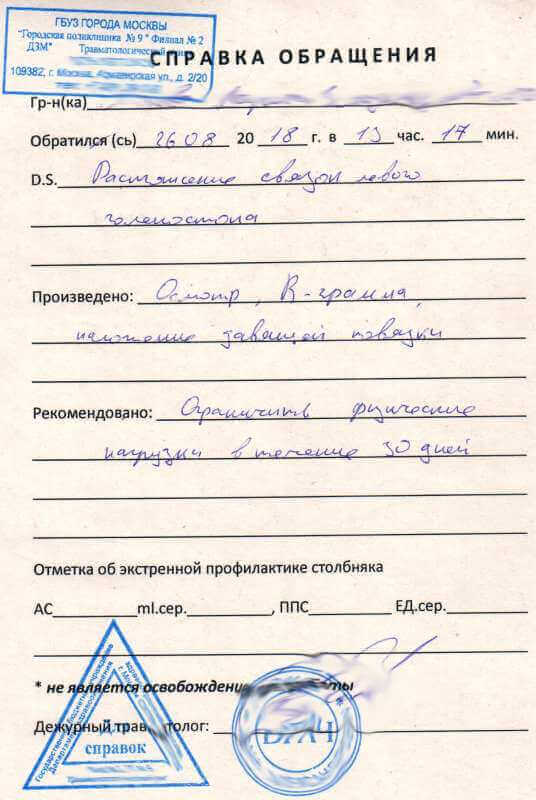 ГБУЗ ГОРОДА МОСКВЫ
"Городская поликлиника № 9" Филиал № 2
ДЗМ" Травматологический
109382, г. Москва, ул., д. 2/20
СПРАВКА ОБРАЩЕНИЯ
Гр-н(ка)
Обратился (сь) 26 08 20 18 г. в 13 час. 17 мин.
D.S. Растяжение связок левого
голеностопа
Произведено: Осмотр, R-грамма,
наложение давящей повязки
Рекомендовано: Ограничить физические
нагрузки в течение 30 дней
Отметка об экстренной профилактике столбняка
АС ml.сер. , ППС ЕД.сер.
* не является освобождением
Дежурный травматолог:
Государственное бюджетное учреждение
Департамента здравоохранения
г. Москвы
Для
справок
ВРАЧ